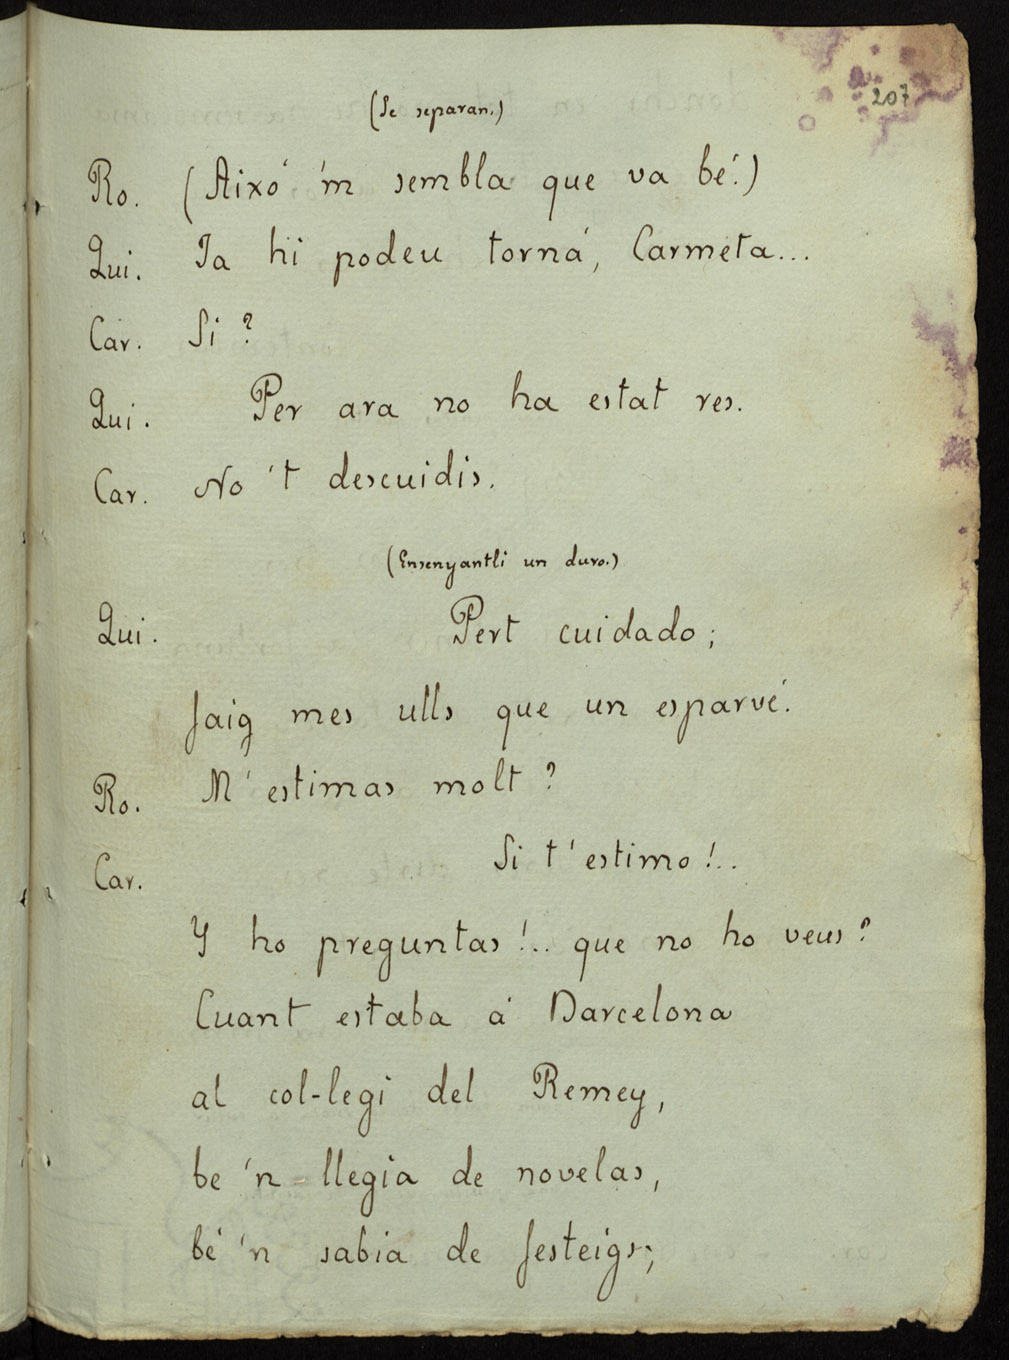 207
(Se separan.)
Ro. (Aixó 'm sembla que va bé.)
Qui. Ja hi podeu torná, Carmeta...
Car. Si?
Qui. Per ara no ha estat res.
Car. No 't descuidis.
(Ensenyantli un duro.)
Qui. Pert cuidado;
faig mes ulls que un esparvé.
Ro. M' estimas molt?
Car. Si t' estimo!..
Y ho preguntas!.. que no ho veus?
Cuant estaba á Barcelona
al col-legi del Remey,
be 'n llegia de novelas,
bé 'n sabia de festeigs;